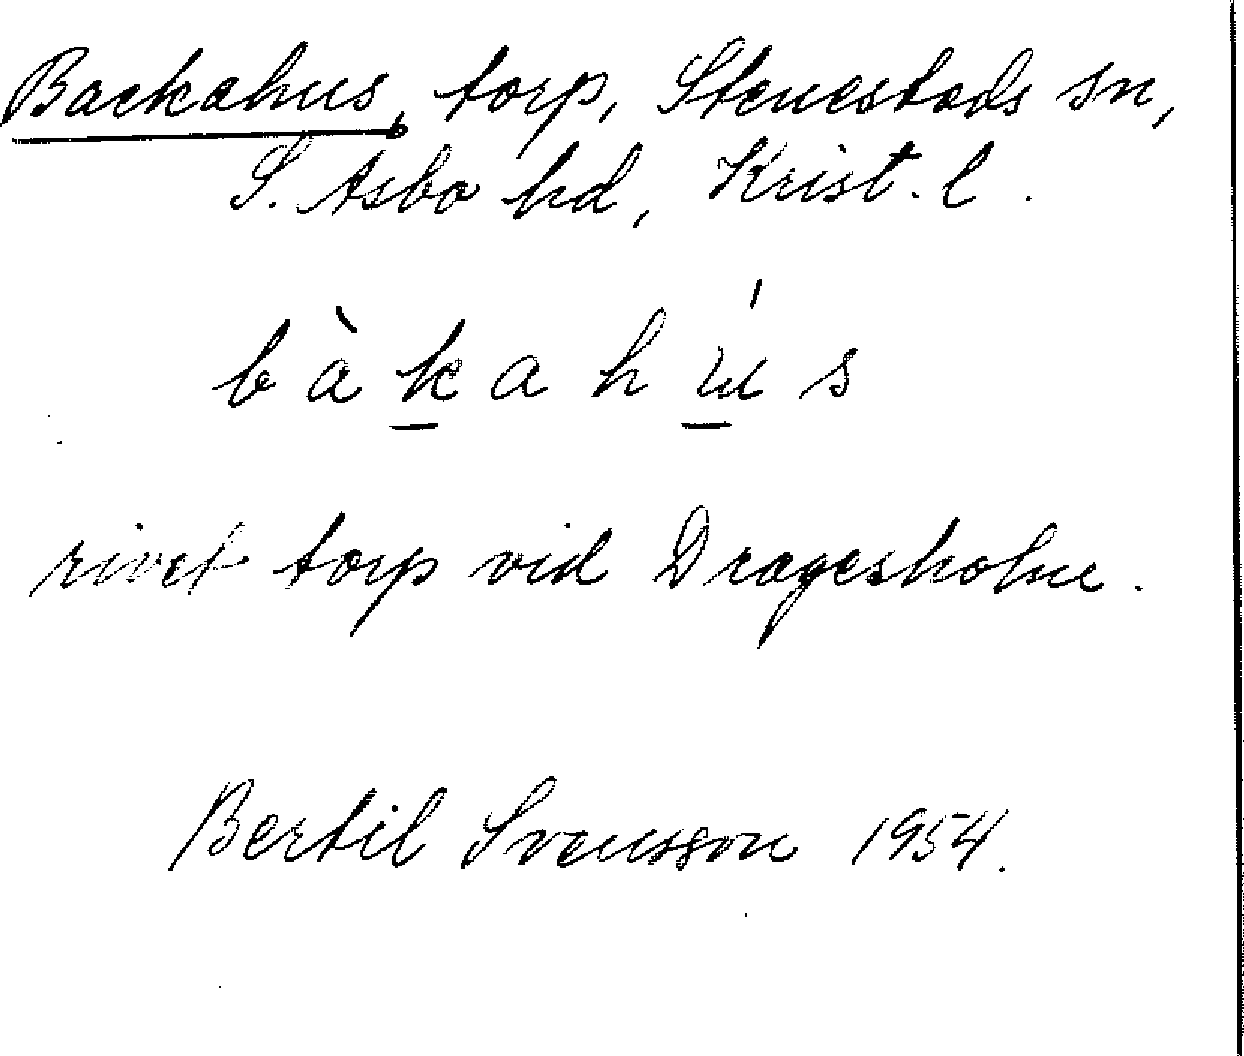 Backahus, torp, Stenestads sn,
S. Asbo hd, Krist. l.
bàkahús
rivet torp vid Dragesholm.
Bertil Svensson 1954.